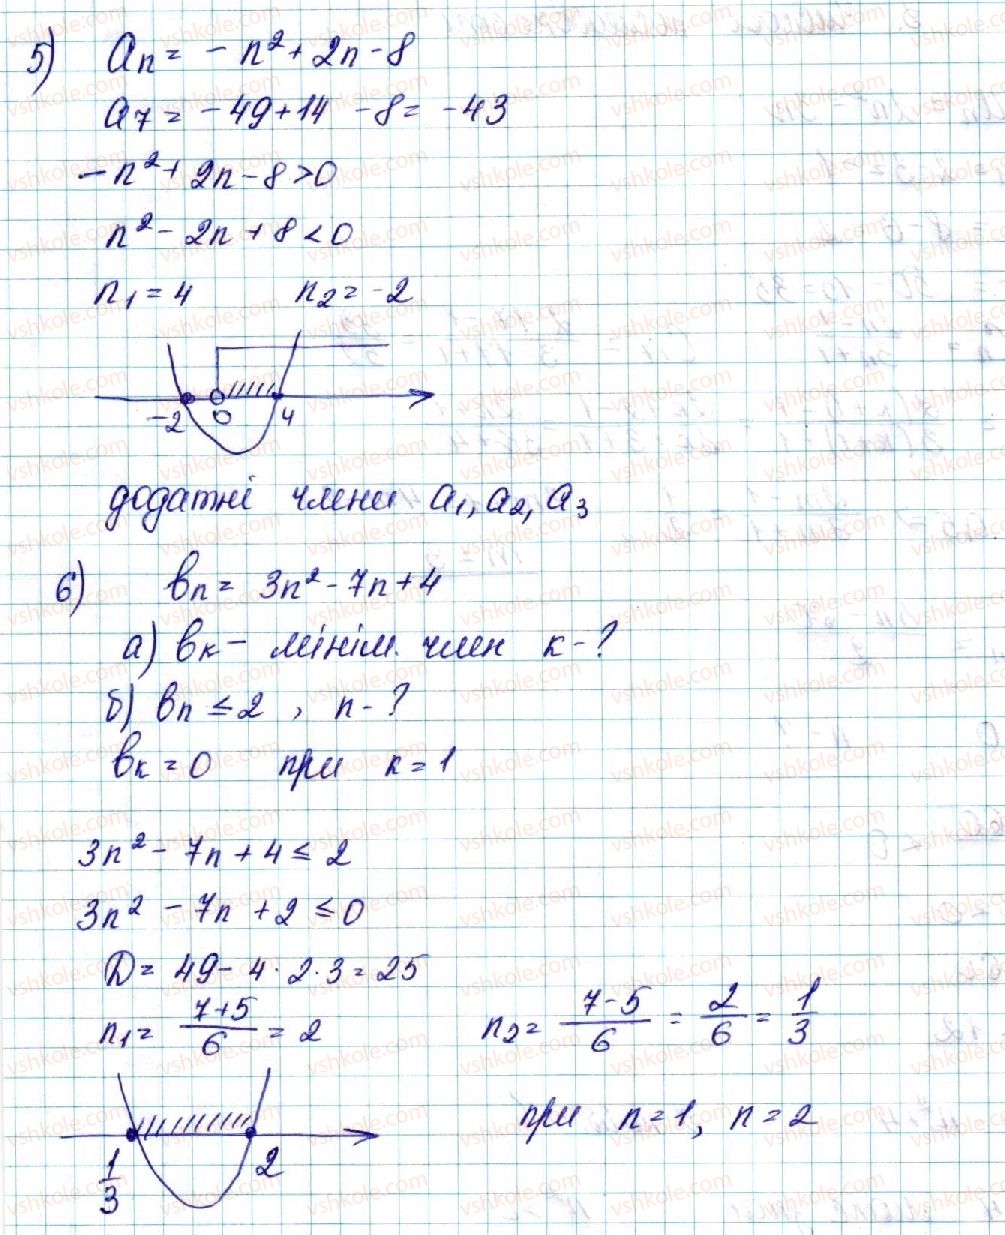 5) an = - n² + 2n - 8
a7 = - 49 + 14 - 8 = - 43
- n² + 2n - 8 > 0
n² - 2n + 8 < 0
n1 = 4 n2 = -2
-2 0 4
додатні члени a1, a2, a3
6) вn = 3n² - 7n + 4
а) вк - мінім. член к - ?
б) вn ≤ 2 , n - ?
вк = 0 при к = 1
3n² - 7n + 4 ≤ 2
3n² - 7n + 2 ≤ 0
D = 49 - 4 · 2 · 3 = 25
n1 = (7+5)/6 = 2 n2 = (7-5)/6 = 2/6 = 1/3
при n = 1, n = 2
1/3 2
vshkole.com